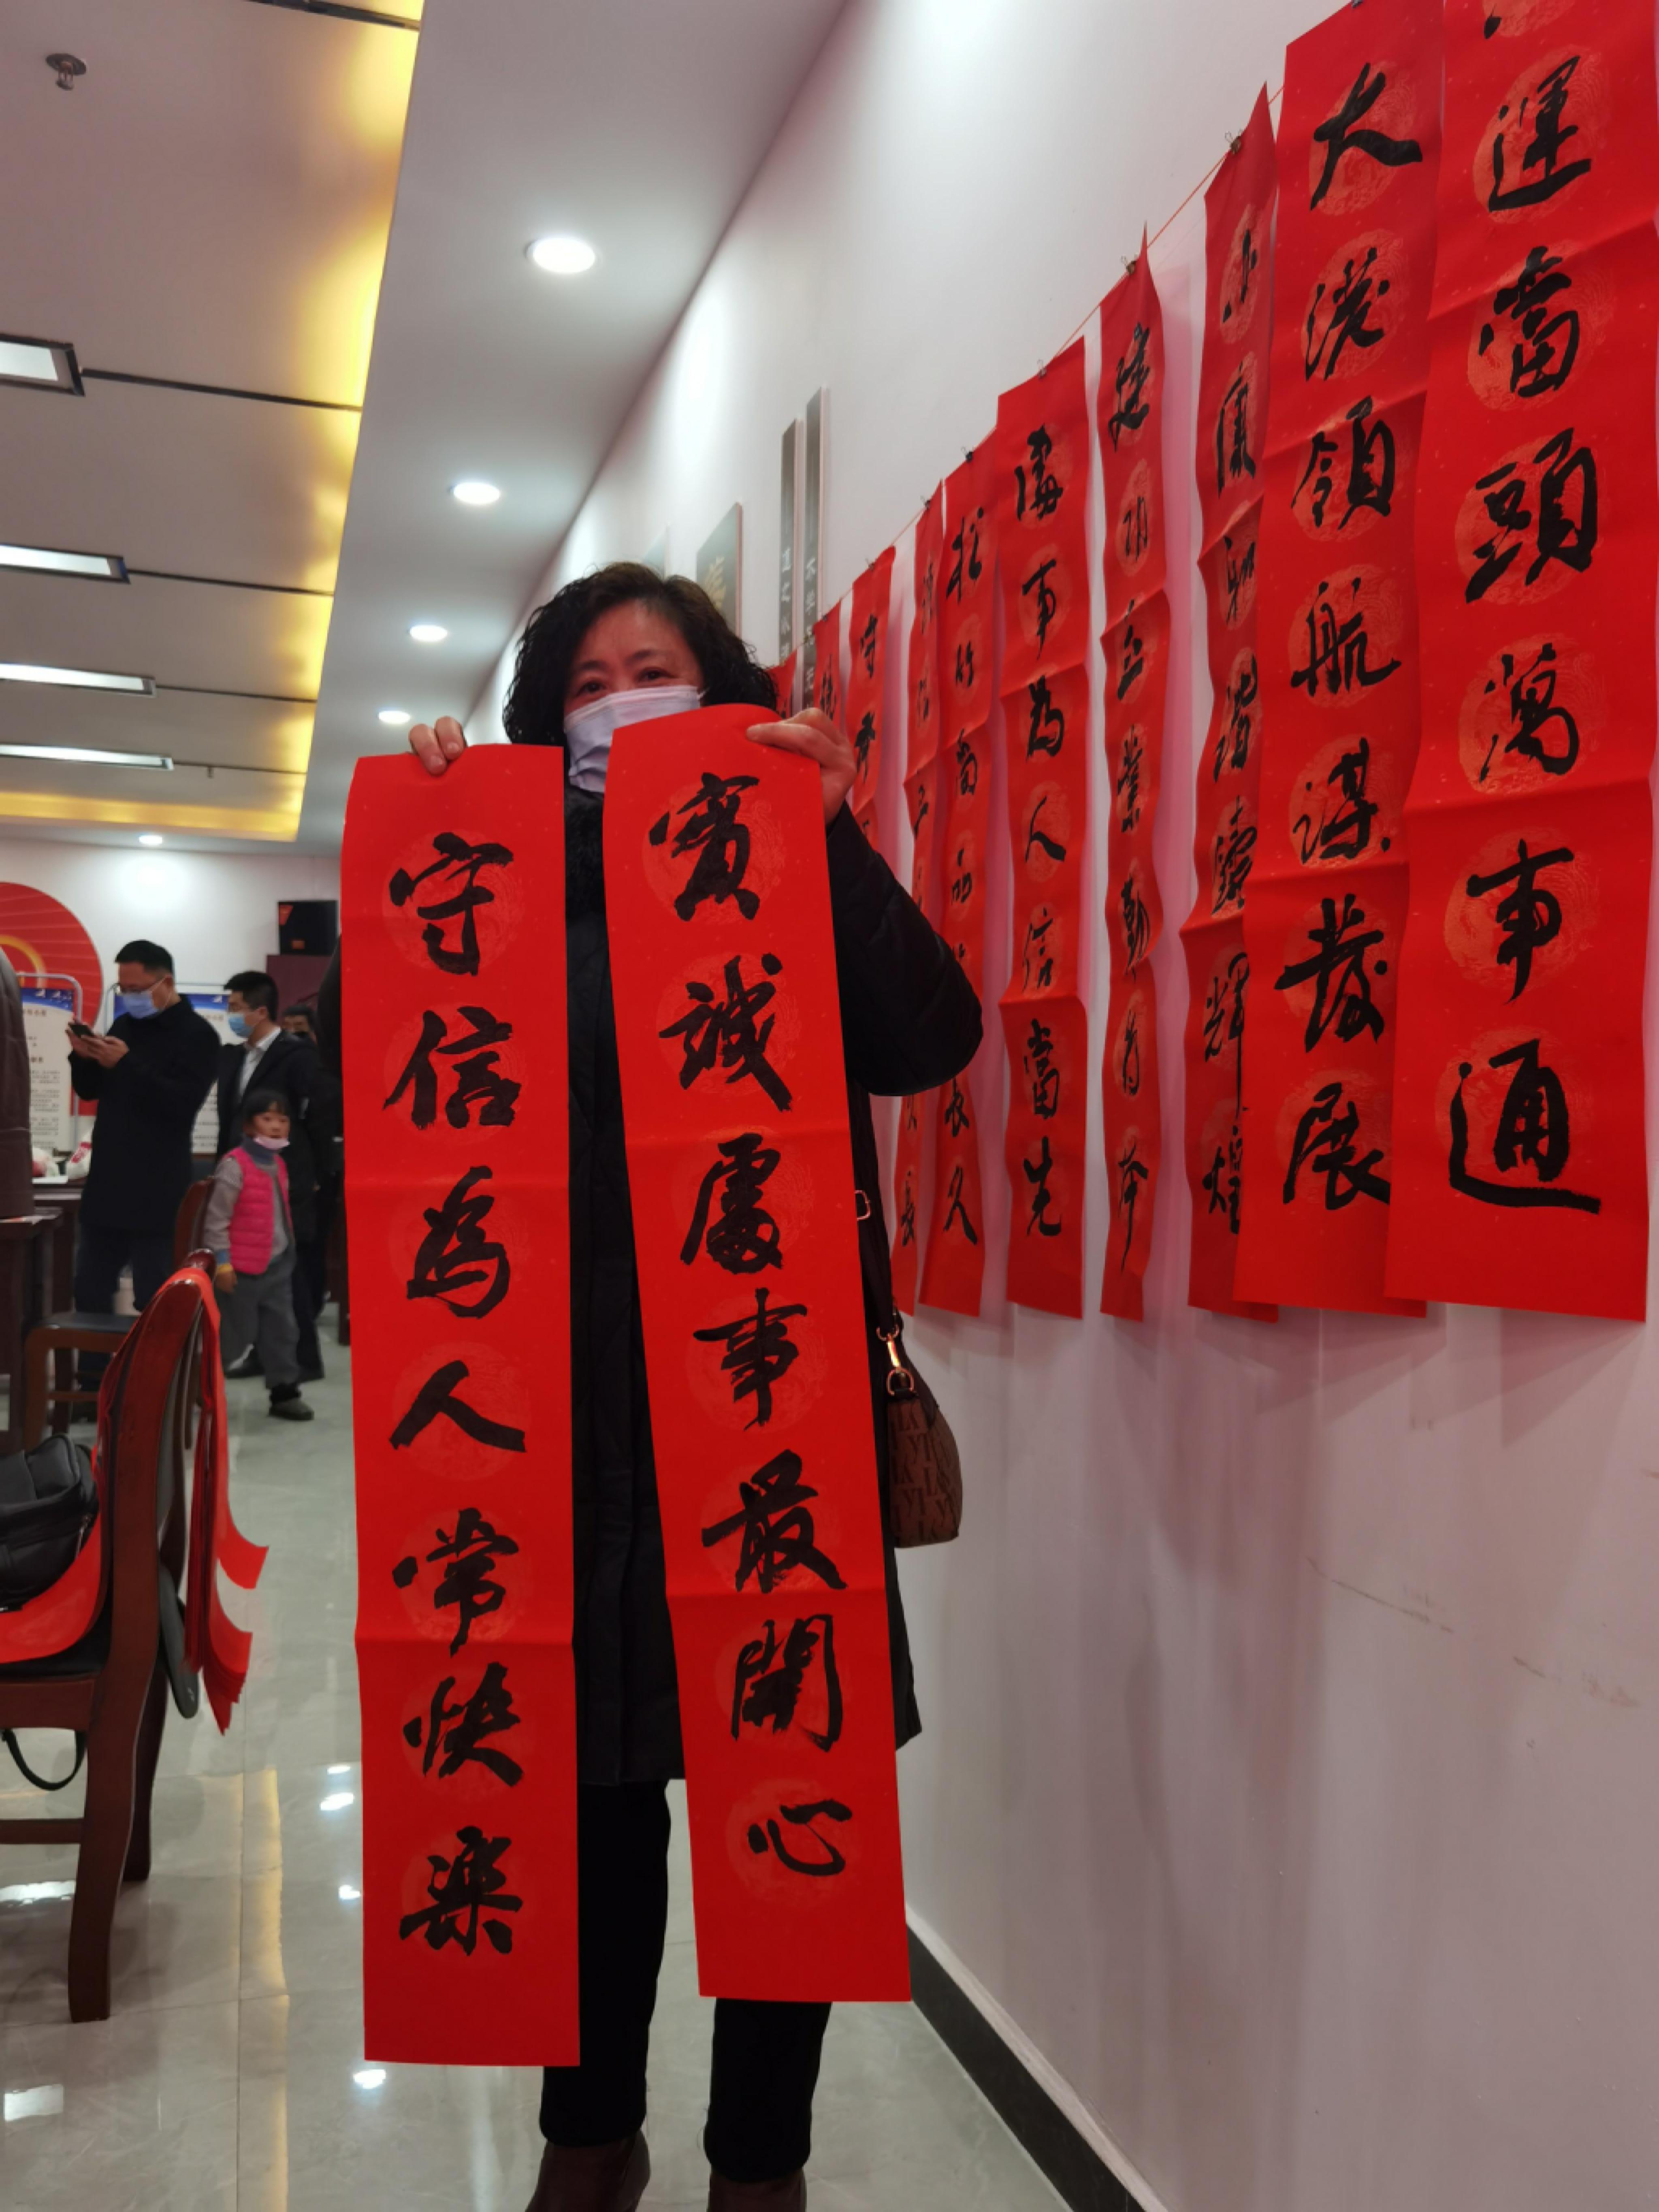 運當頭萬事通
大港領航謀發展
小康和諧續輝煌
建功立業勤為本
處事為人信當先
松竹高品長久
實誠處事最開心
守信為人常快樂